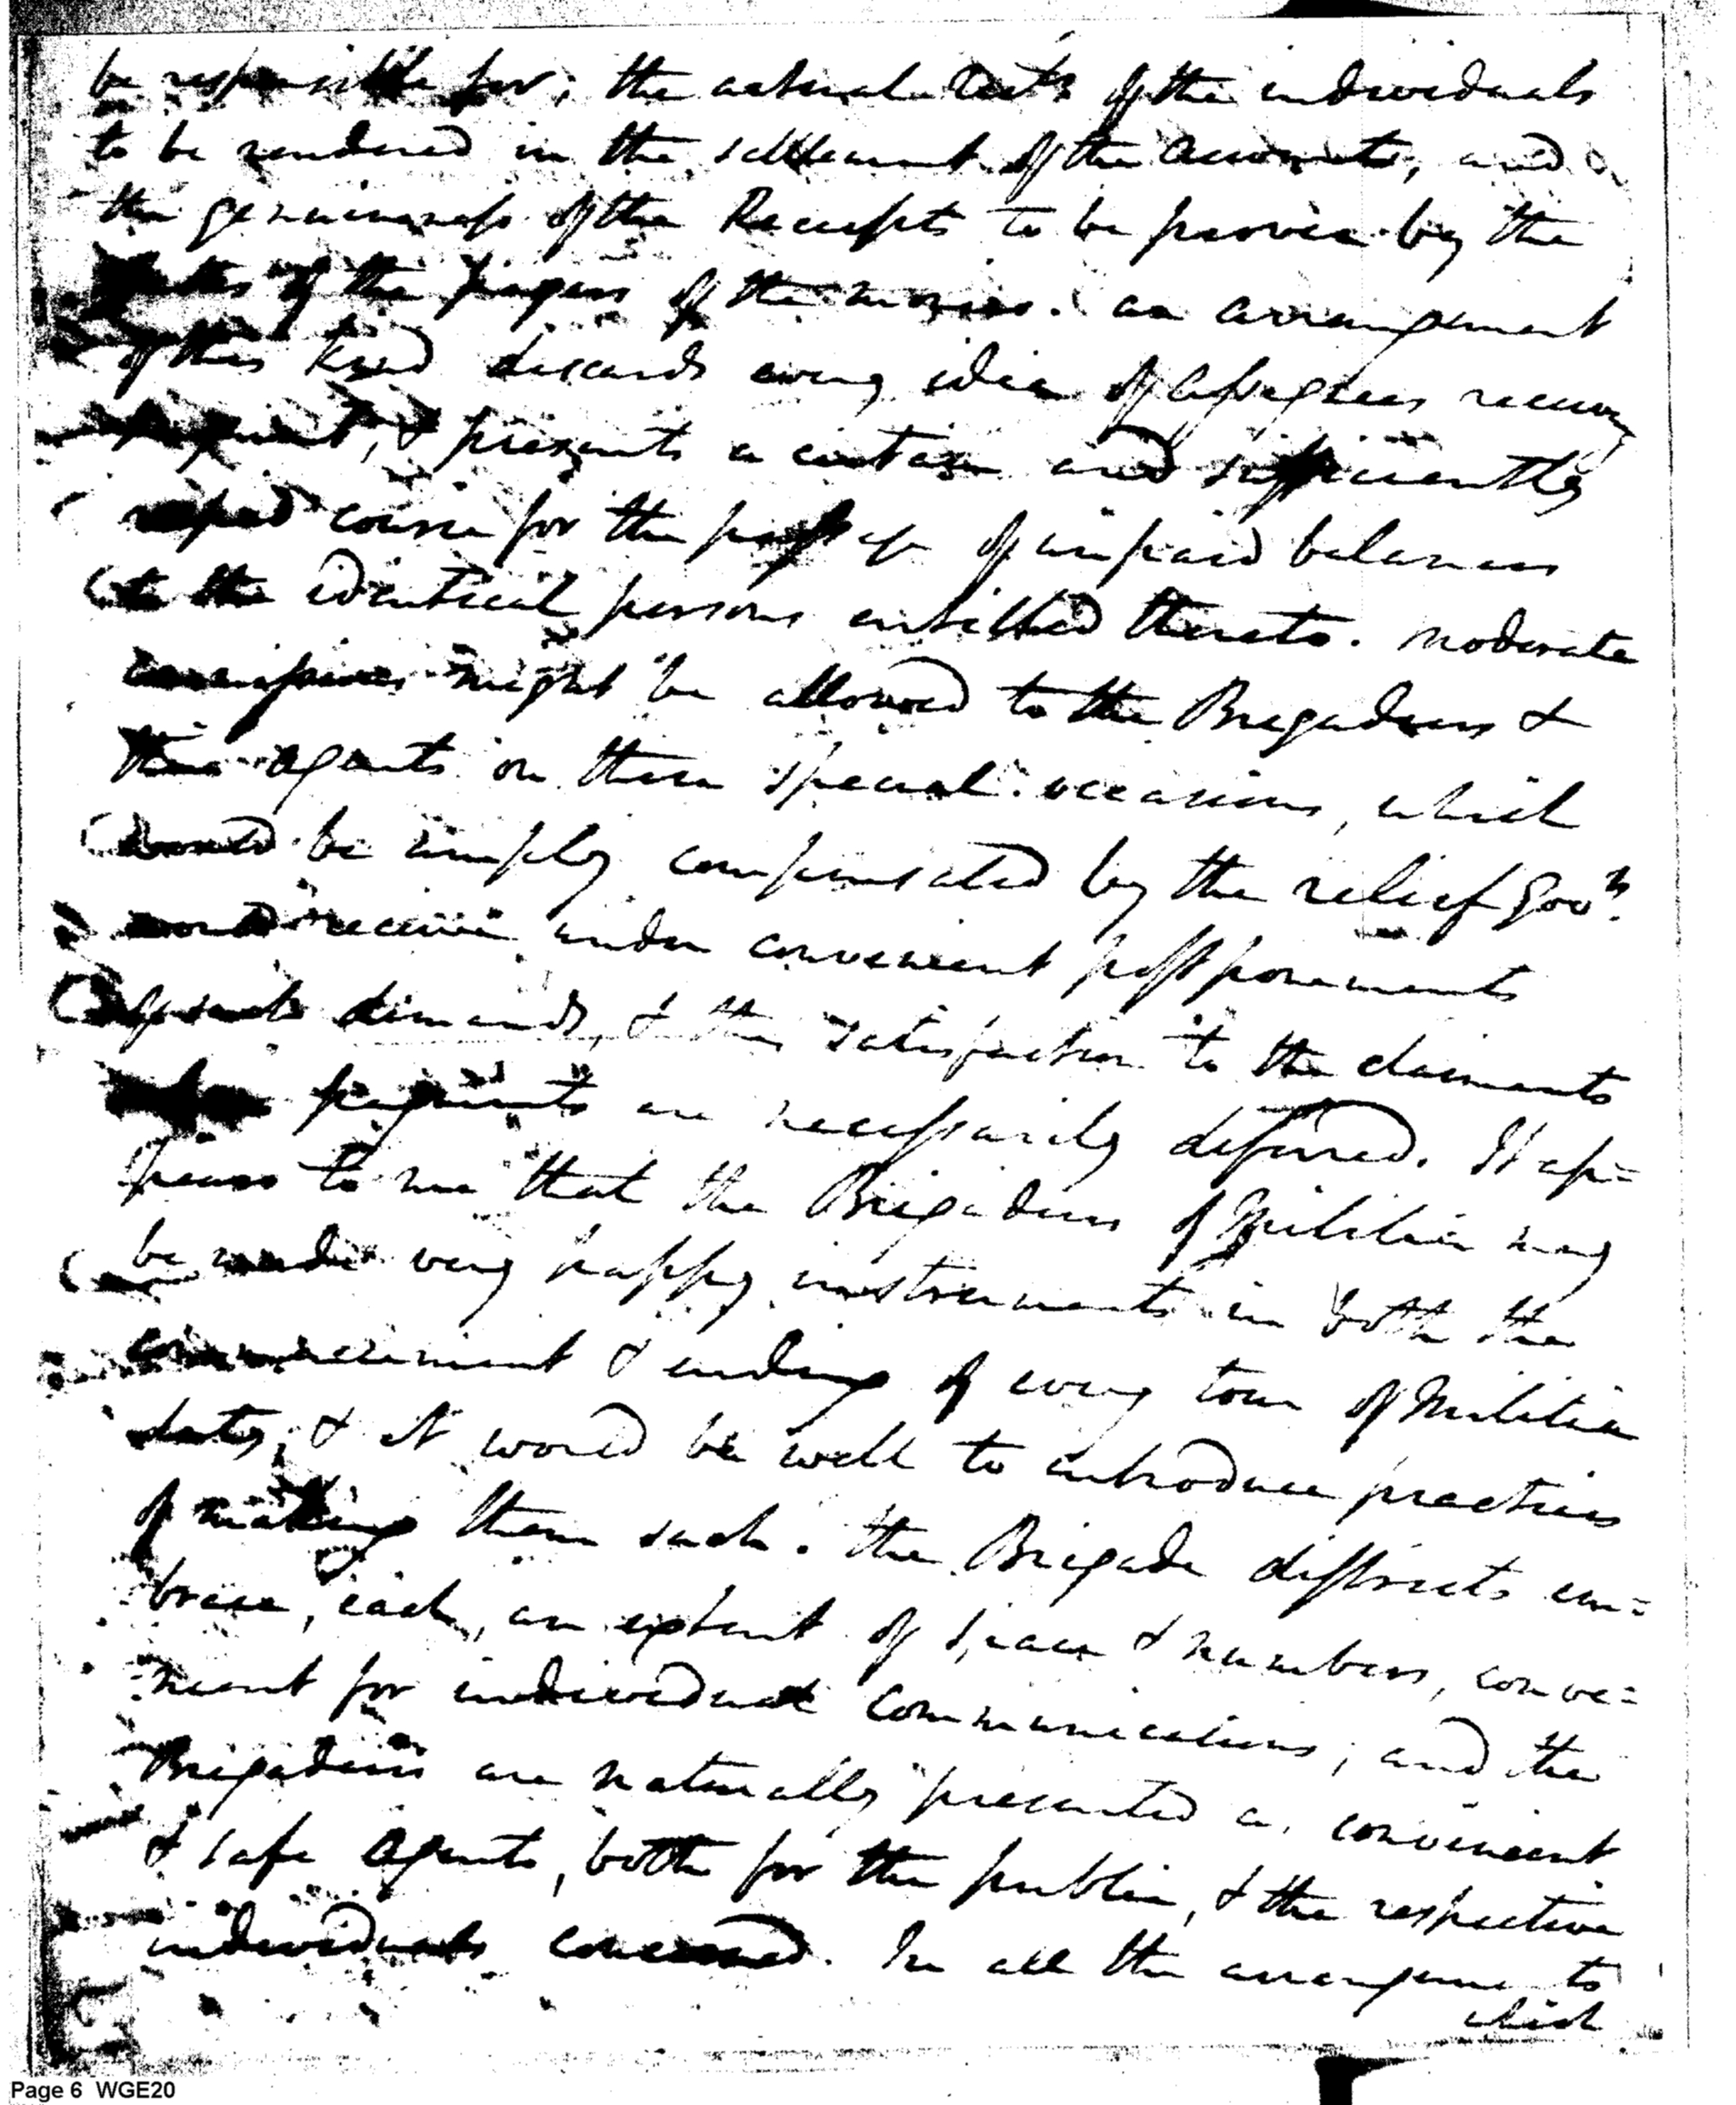 be responsible for; the actual Rects of the individuals
to be rendered in the settlement of the accounts, and
the genuineness of the Receipts to be proven by the
of the payers of the monies. an arrangement
of this kind discards every idea of assignees receivg
payment, & presents a certain and sufficiently
rapid course for the passage of unpaid balances
to the identical persons entitled thereto. moderate
might be allowed to the Brigadiers &
their agents on these special occasions, which
would be amply compensated by the relief Govt.
would receive under convenient postponements
of such demands, & the satisfaction to the claimants
when payments are necessarily deferred. It ap=
pears to me that the Brigadiers of Militia may
be made very happy instruments in both the
commencement & ending of every tour of Militia
duty, & it would be well to introduce practices
of making them such. the Brigade districts em=
brace, each, an extent of space & numbers, conve=
nient for individual communications, and the
Brigadiers are naturally presented as convenient
& safe agents, both for the public, & the respective
individuals concerned. In all the arrangements
which
Page 6 WGE20